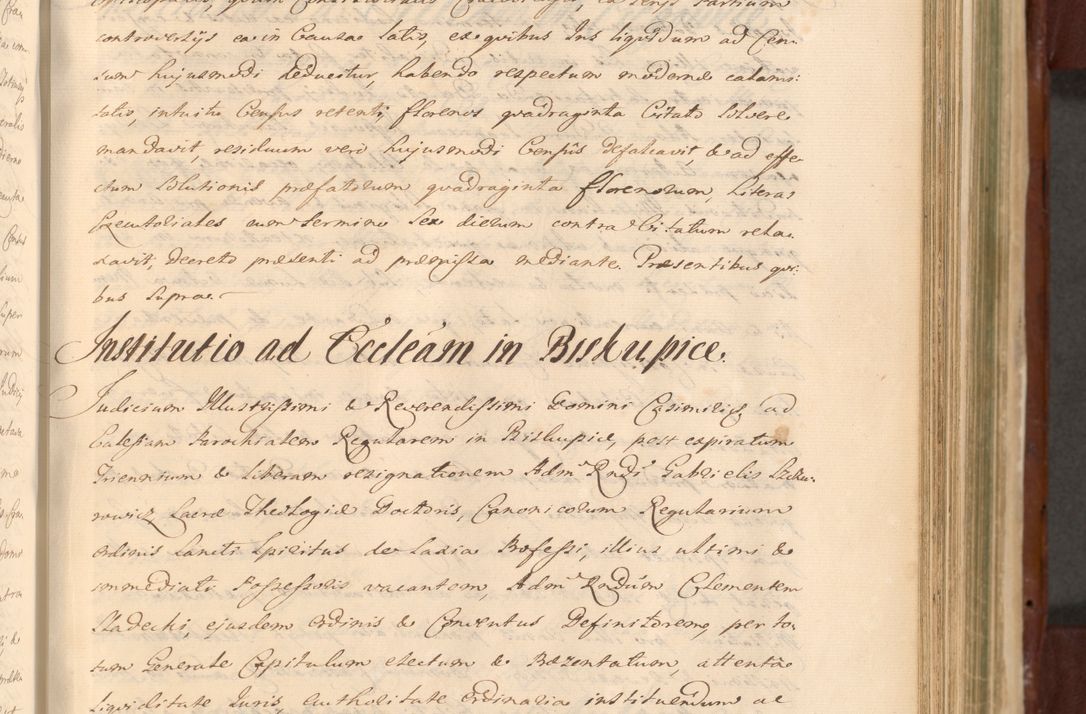 controversijs ea in Causa latis, ex quibus Jus liquidum ad Cen-
sum hujusmodi deducitur, habendo respectum modernae calami-
tatis, intuitu Census retenti florenos quadraginta Citato solvere
mandavit, residuum vero hujusmodi Census defalcavit, & ad effe-
ctum solutionis praefatorum quadraginta florenorum, literas
Executoriales cum termino sex dierum contra Citatum rela-
xavit, decreto praesenti ad praemissa mediante. Praesentibus qui-
bus supra.
Institutio ad Eccleãm in Biskupice.
Judicium Illustrissimi & Reverendissimi Domini Casimiri, ad
Eclesiam Parochialem Regularem in Biskupice, post expiratum
Triennium & liberam resignationem Adm Rndi Gabrielis Szczu-
rowicz Sacrae Theologiae Doctoris, Canonicorum Regularium
Ordinis Sancti Spiritus de Saxia Professi, illius ultimi &
immediati Possessoris vacantem, Adm Rndum Clementem
Sladecki, ejusdem Ordinis & Conventus Definitorem, per to-
tum Generale Capitulum electum & Praezentatum, attenta
liquiditate Juris, authoritate Ordinaria instituendum ac